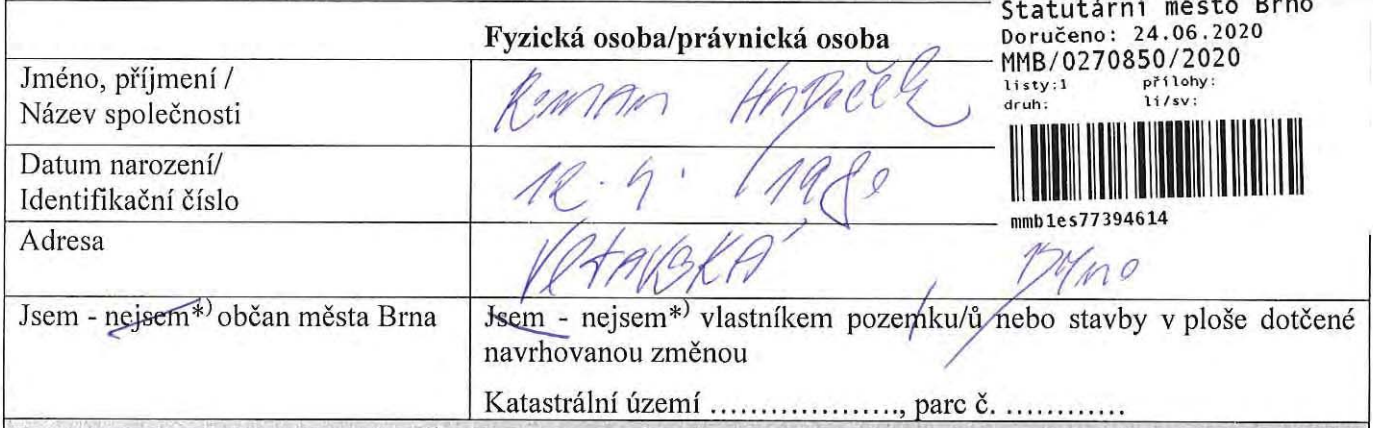 Statutární město Brno
Fyzická osoba/právnická osoba
Doručeno: 24.06.2020
MMB/0270850/2020
listy:1 přílohy:
druh: li/sv:
mmb1es77394614
Jméno, příjmení /
Název společnosti
Roman
Datum narození/
Identifikační číslo
12. 4. 1980
Adresa
Vltavská, Brno
Jsem - nejsem*) občan města Brna
Jsem - nejsem*) vlastníkem pozemku/ů nebo stavby v ploše dotčené
navrhovanou změnou
Katastrální území ..................., parc č. ............